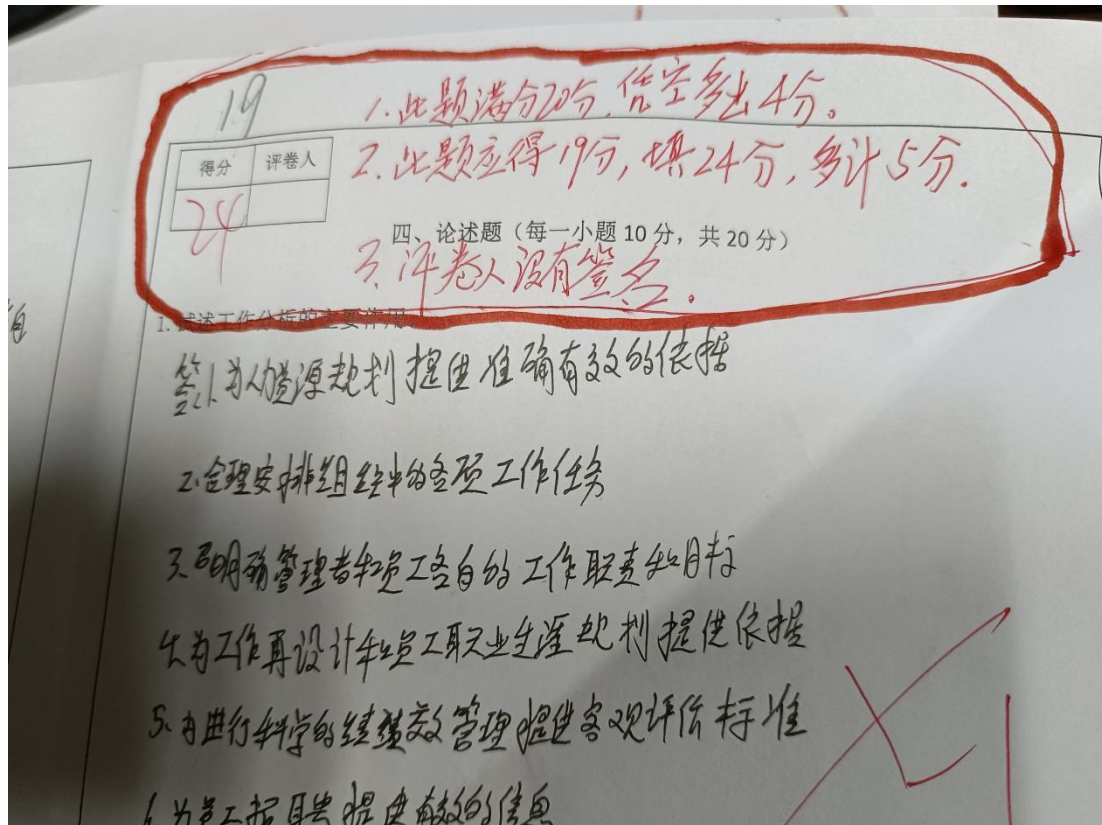 19
1.此题满分20分,凭空多出4分。
得分 评卷人
2.此题应得19分,填24分,多计5分.
24
四、论述题(每一小题10分,共20分)
3、评卷人没有签名。
1.试述工作分析的主要作用。
答:1、为人力资源规划提供准确有效的依据
2、合理安排组织中的各项工作任务
3、明确管理者和员工各自的工作职责和目标
4、为工作再设计和员工职业生涯规划提供依据
5、为进行科学的绩效管理提供客观评价标准
6、为员工招聘提供有效的信息